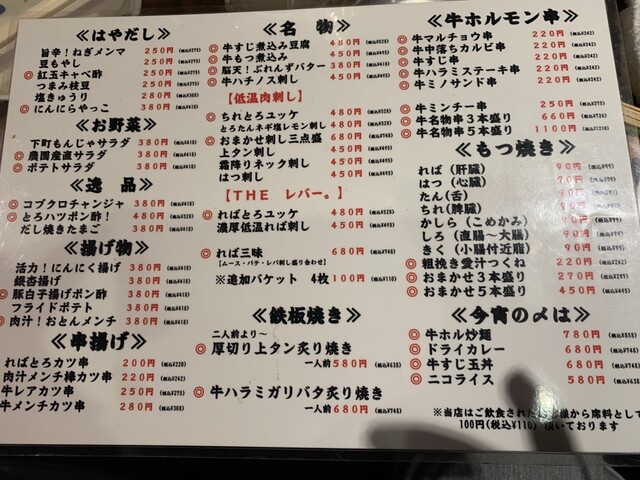 ≪はやだし≫
旨辛!ねぎメンマ 250円(税込¥275)
豆もやし 250円(税込¥275)
◎紅玉キャベ酢 250円(税込¥275)
つまみ枝豆 250円(税込¥275)
塩きゅうり 280円(税込¥308)
◎にんにらやっこ 380円(税込¥418)
≪お野菜≫
下町もんじゃサラダ 380円(税込¥418)
◎農園直産サラダ 380円(税込¥418)
◎ポテトサラダ 380円(税込¥418)
≪逸 品≫
◎コブクロチャンジャ 380円(税込¥418)
◎とろハツポン酢! 480円(税込¥528)
だし焼きたまご 380円(税込¥418)
≪揚げ物≫
活力!にんにく揚げ 380円(税込¥418)
銀杏揚げ 380円(税込¥418)
◎豚白子揚げポン酢 380円(税込¥418)
フライドポテト 380円(税込¥418)
◎肉汁!おとんメンチ 380円(税込¥418)
≪串揚げ≫
ればとろカツ串 200円(税込¥220)
肉汁メンチ棒カツ串 220円(税込¥242)
牛レアカツ串 250円(税込¥275)
牛メンチカツ串 280円(税込¥308)
≪名 物≫
◎牛すじ煮込み豆腐 480円(税込¥528)
◎牛もつ煮込み 450円(税込¥495)
◎脳天!ぶれんずバター 380円(税込¥418)
◎牛ハチノス刺し 450円(税込¥495)
【低温肉刺し】
◎ちれとろユッケ 480円(税込¥528)
とろたんネギ塩レモン刺し 480円(税込¥528)
◎おまかせ刺し三点盛 680円(税込¥748)
上タン刺し 450円(税込¥495)
霜降りネック刺し 450円(税込¥495)
はつ刺し 450円(税込¥495)
【THE レバー。】
◎ればとろユッケ 480円(税込¥528)
濃厚低温れば刺し 450円(税込¥495)
◎れば三昧 680円(税込¥748)
【ムース・パテ・レバ刺し盛り合わせ】
※追加バケット 4枚 100円(税込¥110)
≪鉄板焼き≫
二人前より〜
◎厚切り上タン炙り焼き
一人前580円(税込¥638)
◎牛ハラミガリバタ炙り焼き
一人前680円(税込¥748)
≪牛ホルモン串≫
◎牛マルチョウ串 220円(税込¥242)
◎牛中落ちカルビ串 220円(税込¥242)
◎牛すじ串 220円(税込¥242)
◎牛ハラミステーキ串 220円(税込¥242)
◎牛ミノサンド串 220円(税込¥242)
◎牛ミンチー串 250円(税込¥275)
◎牛名物串3本盛り 660円(税込¥726)
◎牛名物串5本盛り 1100円(税込¥1210)
≪もつ焼き≫
れば(肝臓) 90円(税込¥99)
はつ(心臓) 90円(税込¥99)
たん(舌) 90円(税込¥99)
ちれ(脾臓) 90円(税込¥99)
かしら(こめかみ) 90円(税込¥99)
しろ(直腸〜大腸) 90円(税込¥99)
きく(小腸付近脂) 90円(税込¥99)
◎粗挽き愛汁つくね 220円(税込¥242)
◎おまかせ3本盛り 270円(税込¥297)
◎おまかせ5本盛り 450円(税込¥495)
≪今宵の〆は≫
◎牛ホル炒麺 780円(税込¥858)
◎ドライカレー 680円(税込¥748)
◎牛すじ玉丼 680円(税込¥748)
◎ニコライス 580円(税込¥638)
※当店はご飲食された 様から席料として
100円(税込¥110) 頂いております